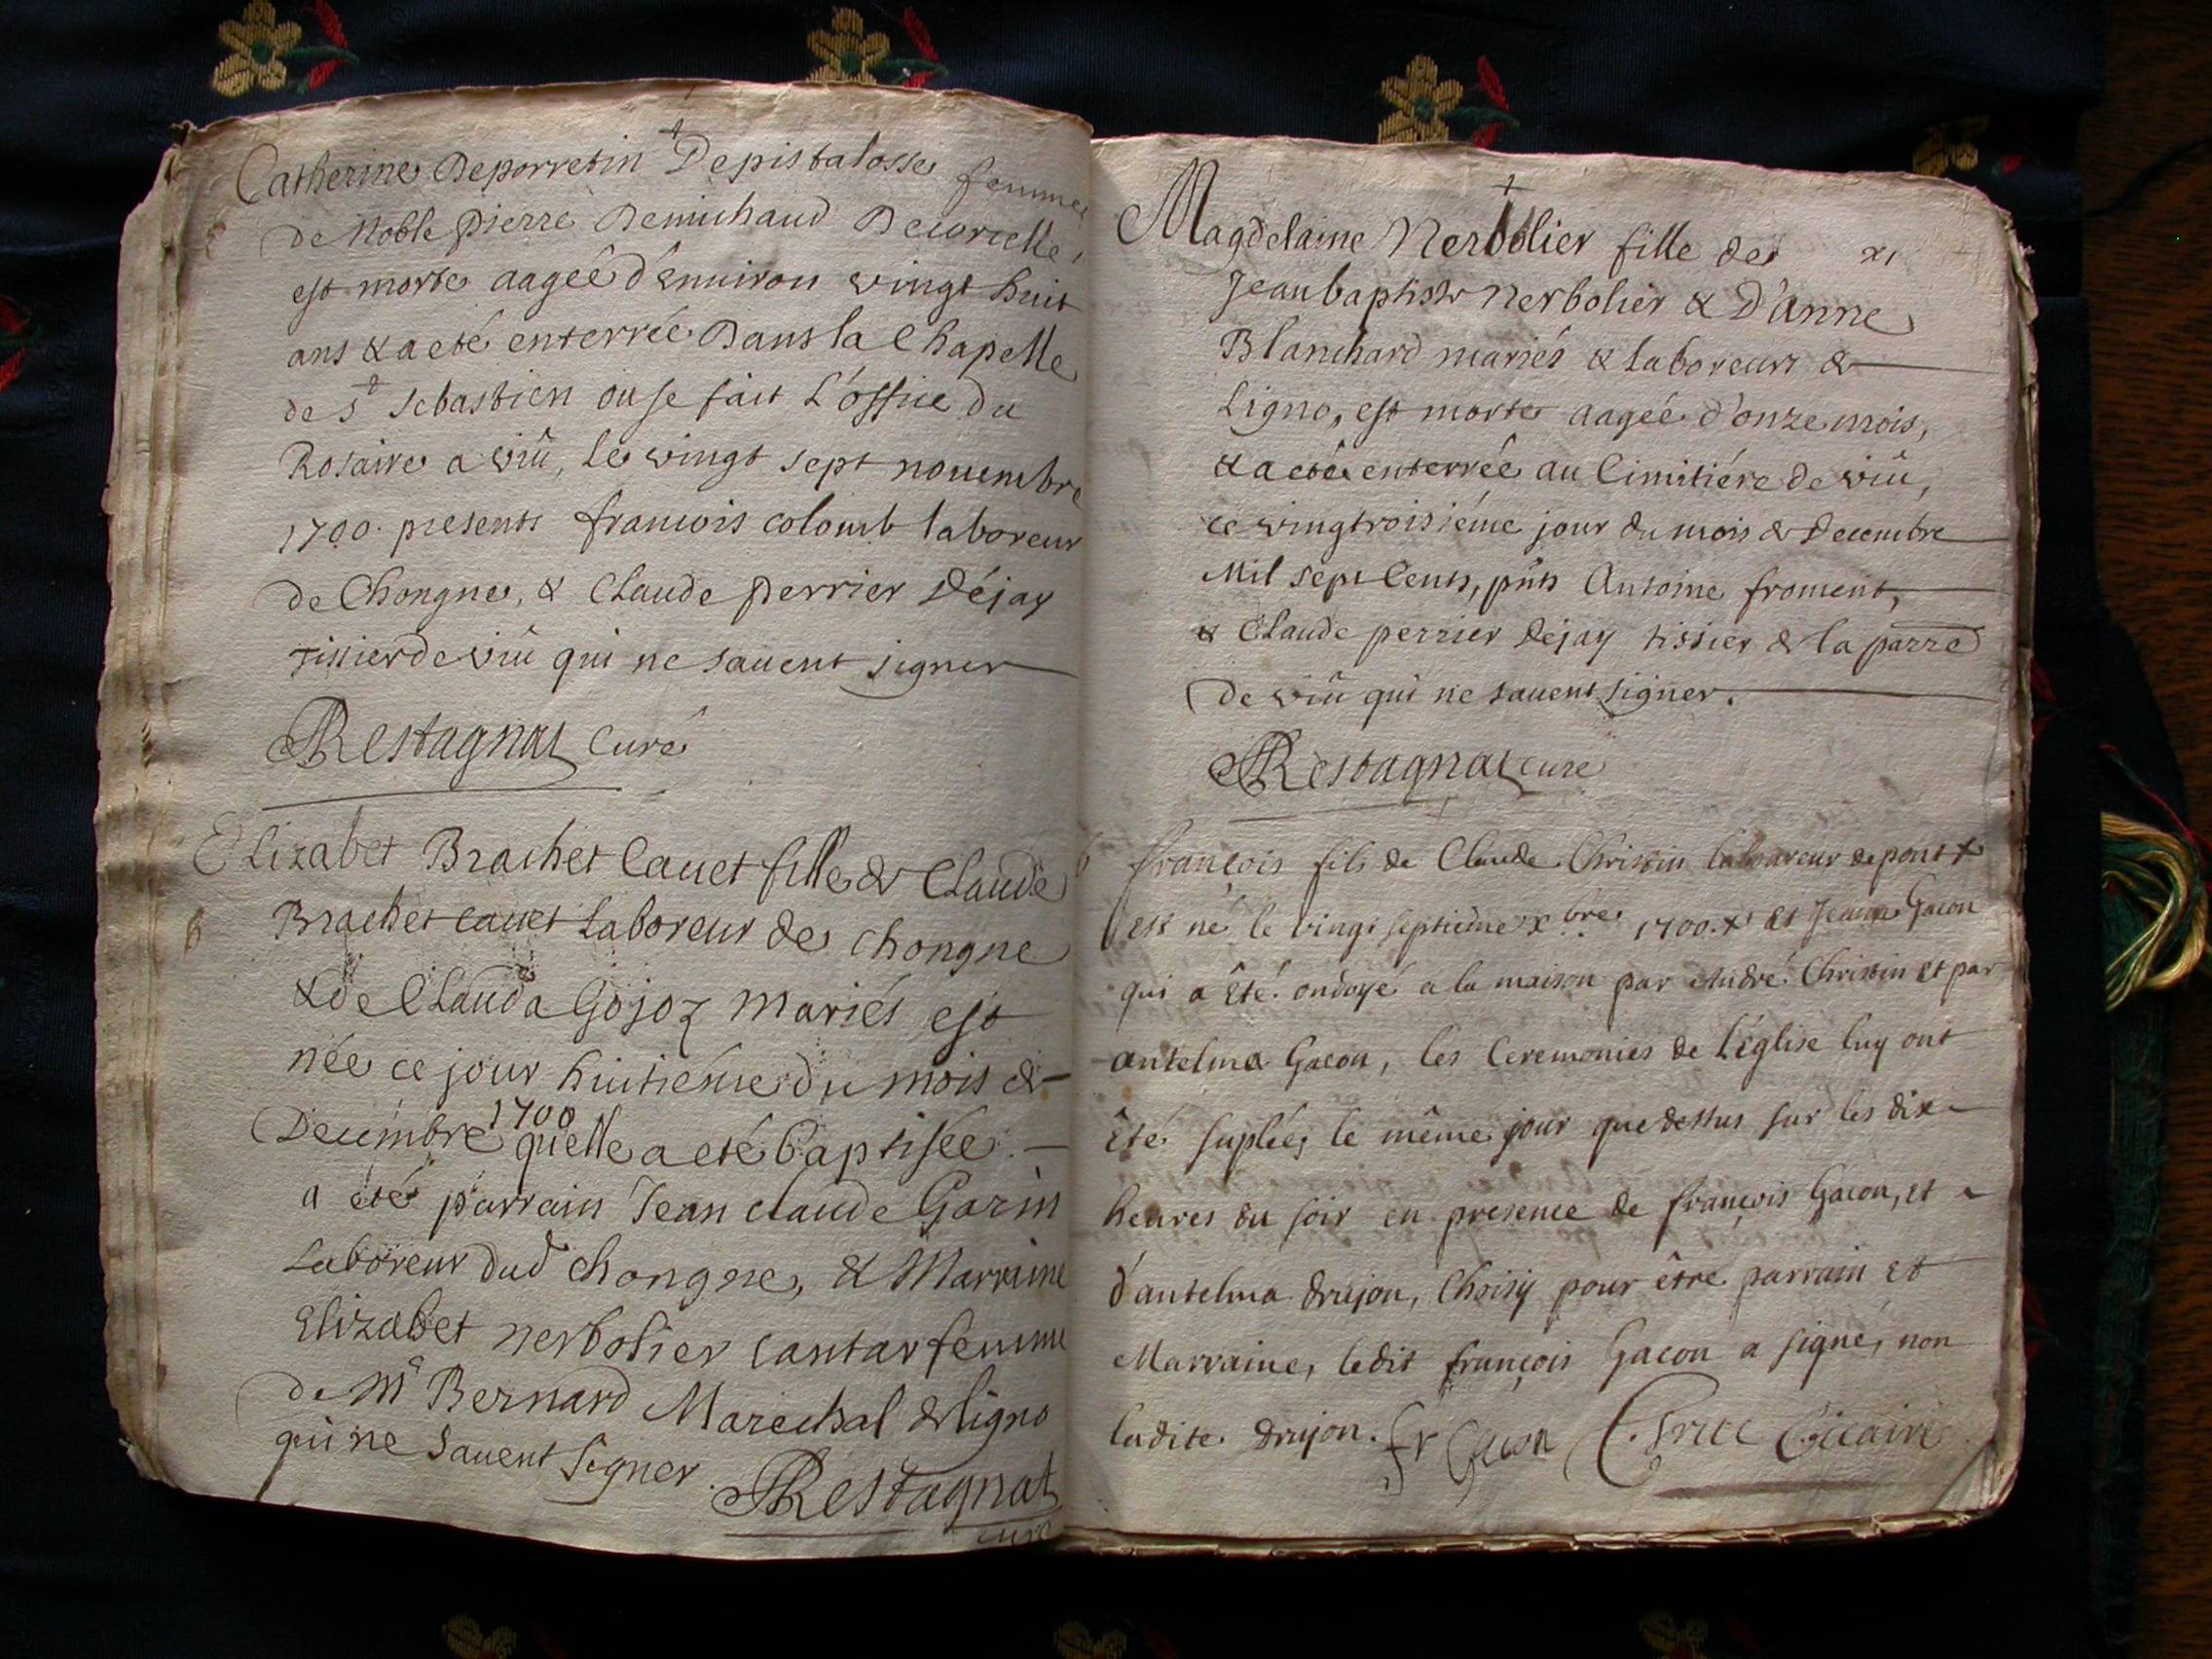 Catherine Deporretin Depistalosse femme
de Noble pierre Demichaud Decorcelle,
est morte aagée d'enuiron vingt huit
ans & a eté enterrée Dans la Chapelle
de St Sebastien ou se fait L'office du
Rosaire a viû, le vingt sept nouembre
1700. presents francois colomb laboreur
de Chongne, & Claude perrier Déjay
tissier de viû qui ne sauent signer
Restagnat Curé
Elizabet Brachet Cauet fille de Claude
B Brachet cauet Laboreur de chongne
& de Clauda Gojoz mariés est
née ce jour huitiéme du mois de
Decémbre 1700 quelle a eté baptisée.
a eté parrain Jean claude Garin
Laboreur dud chongne, & Marraine
Elizabet nerbolier cantar femme
de Me Bernard Marechal de ligno
qui ne sauent signer.
Restagnat
curé
Magdelaine Nerbolier fille de
Jeanbaptiste Nerbolier & D'anne
Blanchard mariés & laboreurs de
Ligno, est morte aagée d'onze mois,
& a eté enterrée au Cimitiére de viû,
ce vingtroisiéme jour du mois de Decembre
Mil sept Cents, pnts Antoine froment,
& Claude perrier Dejay tissier de la parre
de viû qui ne sauent signer.
Restagnat curé
françois fils de Claude Christin laboureur de pont x
est né le vingt septiéme xbre 1700. x et Jeanne Gacon
qui a êté ondoyé a la maison par André Christin et par
antelma Gacon, les Ceremonies de L'église luy ont
êté supléés le même jour que dessus sur les dix
heures du soir en presence de françois Gacon, et
d'antelma drujon, Choisy pour être parrain et
Marraine, ledit françois Gacon a signé, non
ladite drujon. fr Gacon Vicaire